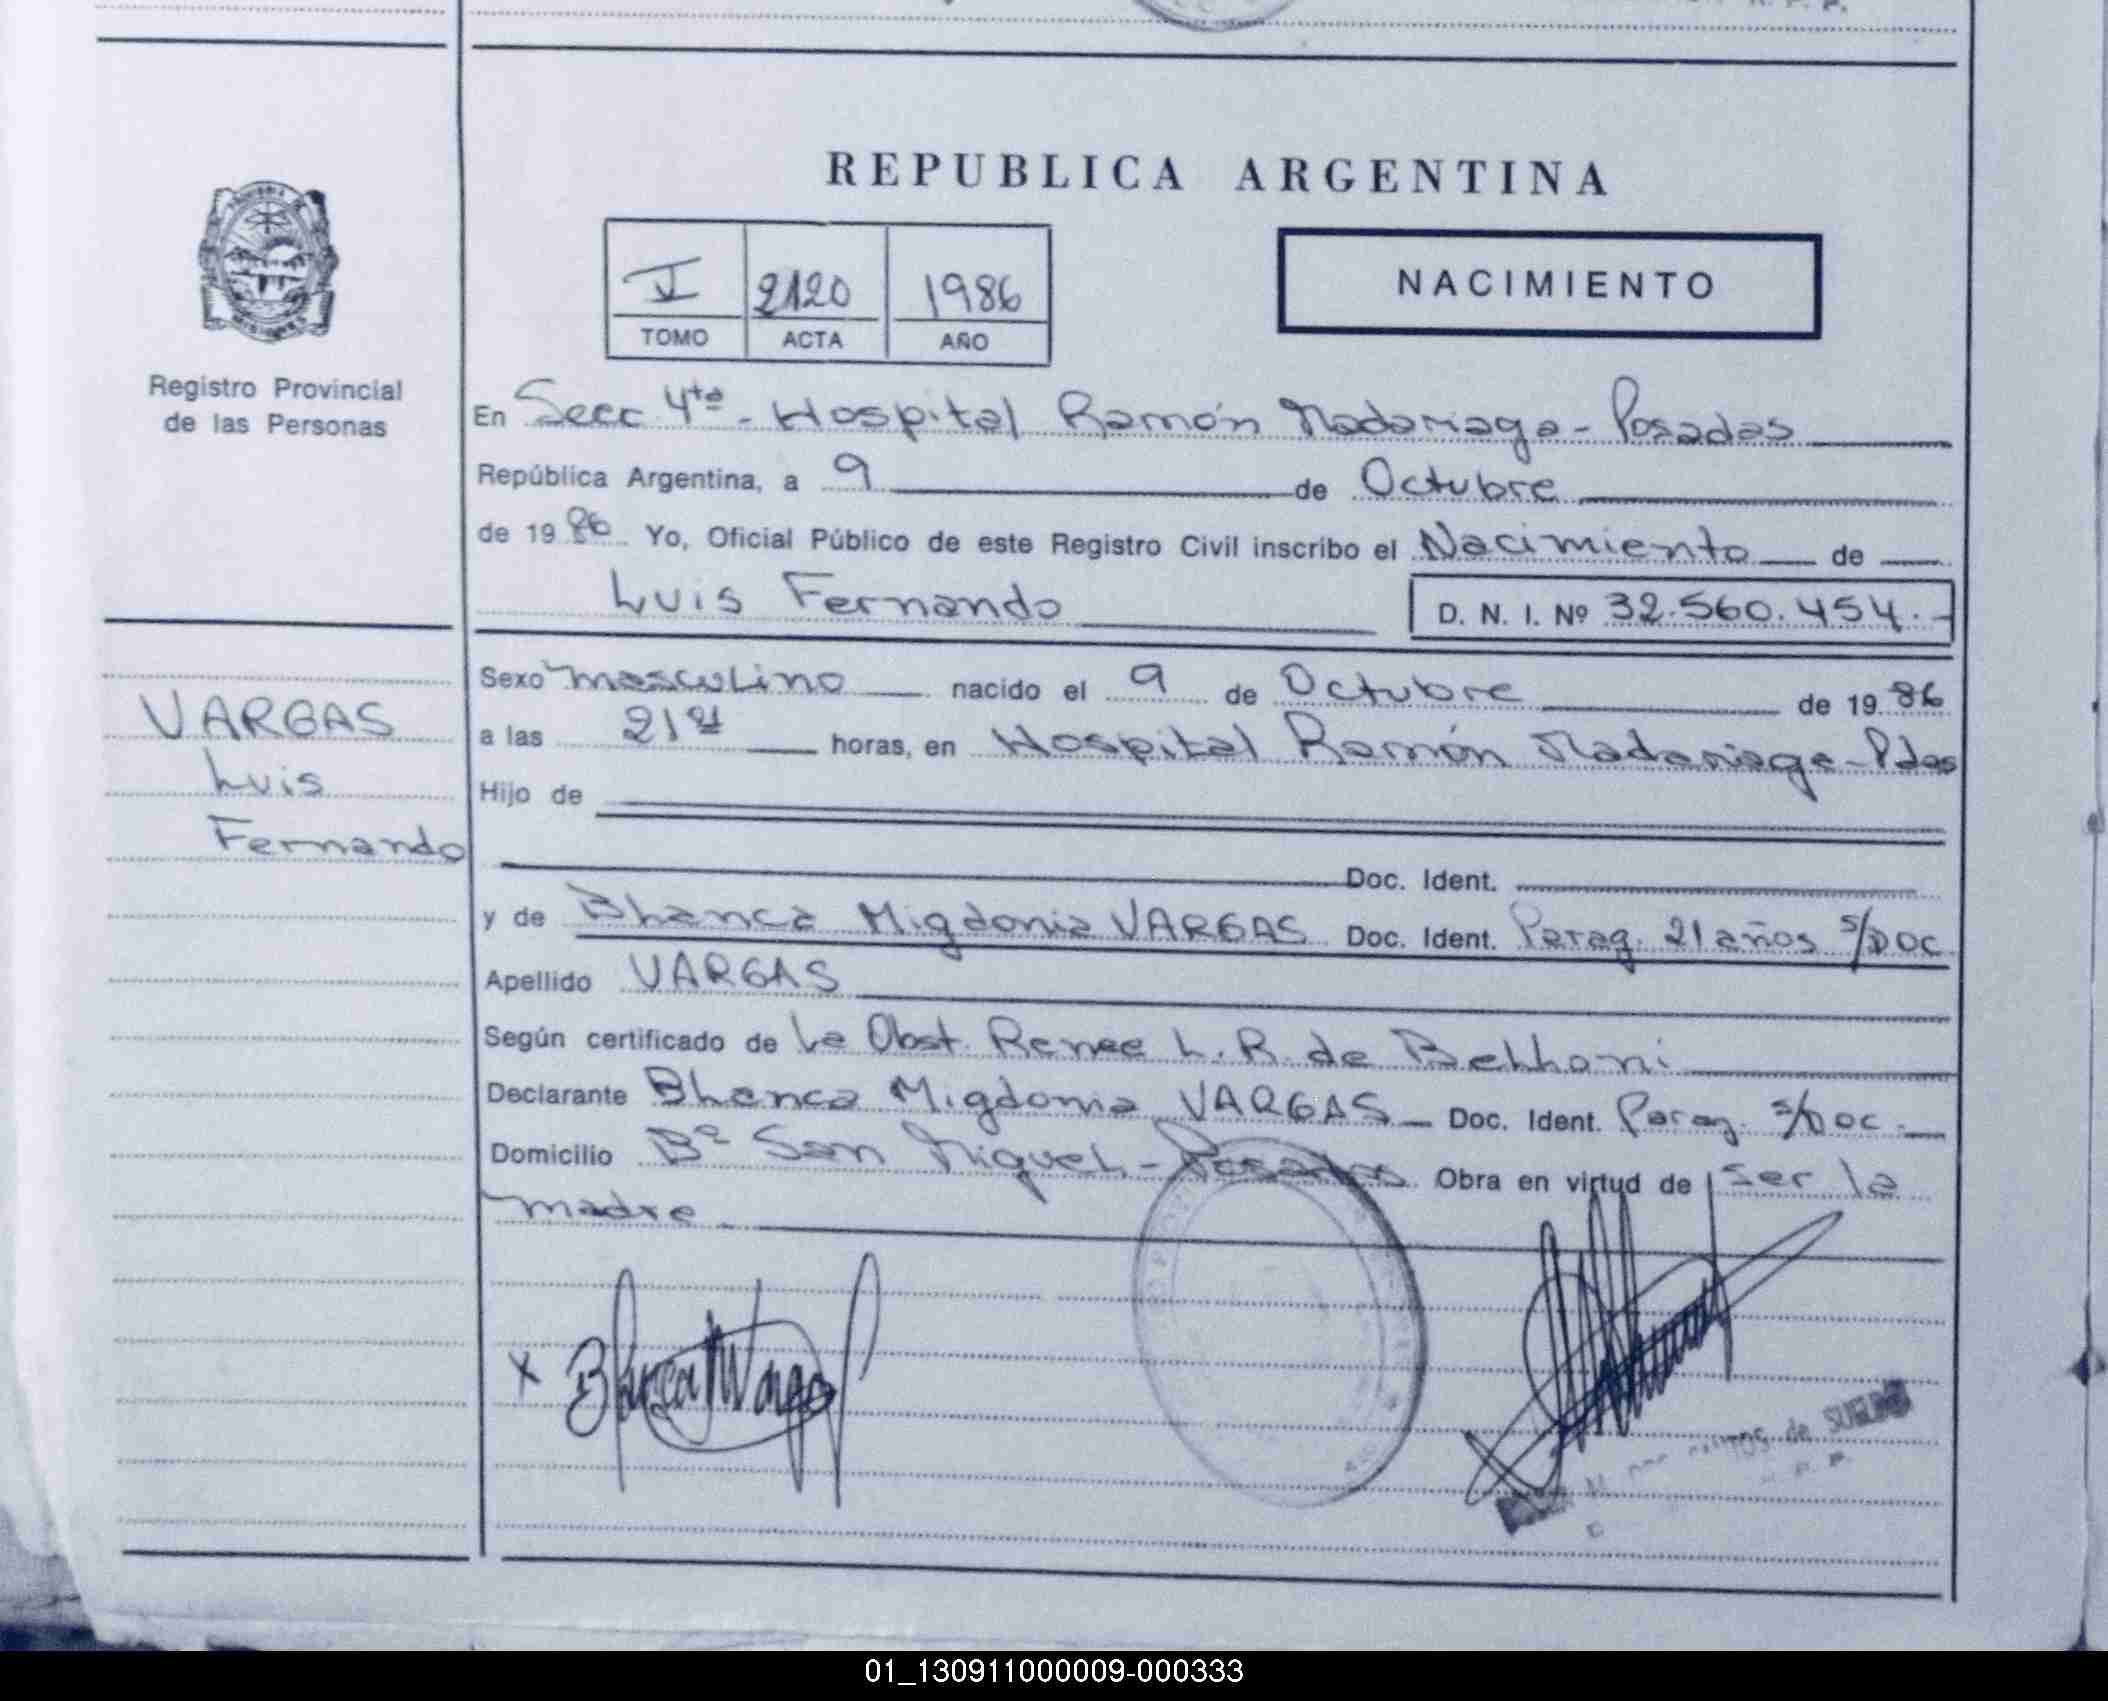 REPUBLICA ARGENTINA
V 2120 1986
TOMO ACTA AÑO
NACIMIENTO
Registro Provincial
de las Personas
En Secc 4ta - Hospital Ramón Madariaga - Posadas
República Argentina, a 9 de Octubre
de 1986 Yo, Oficial Público de este Registro Civil inscribo el Nacimiento de
Luis Fernando D. N. I. Nº 32.560.454.-
VARGAS
Luis
Fernando
Sexo masculino nacido el 9 de Octubre de 1986
a las 21 horas, en Hospital Ramón Madariaga - Pdas
Hijo de
Doc. Ident.
y de Blanca Migdonia VARGAS Doc. Ident. Parag. 21 años s/Doc
Apellido VARGAS
Según certificado de la Obst. Renee L. R. de Belloni
Declarante Blanca Migdonia VARGAS Doc. Ident. Parag. s/Doc.
Domicilio Bº San Miguel - Posadas Obra en virtud de ser la
madre
x Blanca M Vargas
de SUELDO
01_130911000009-000333